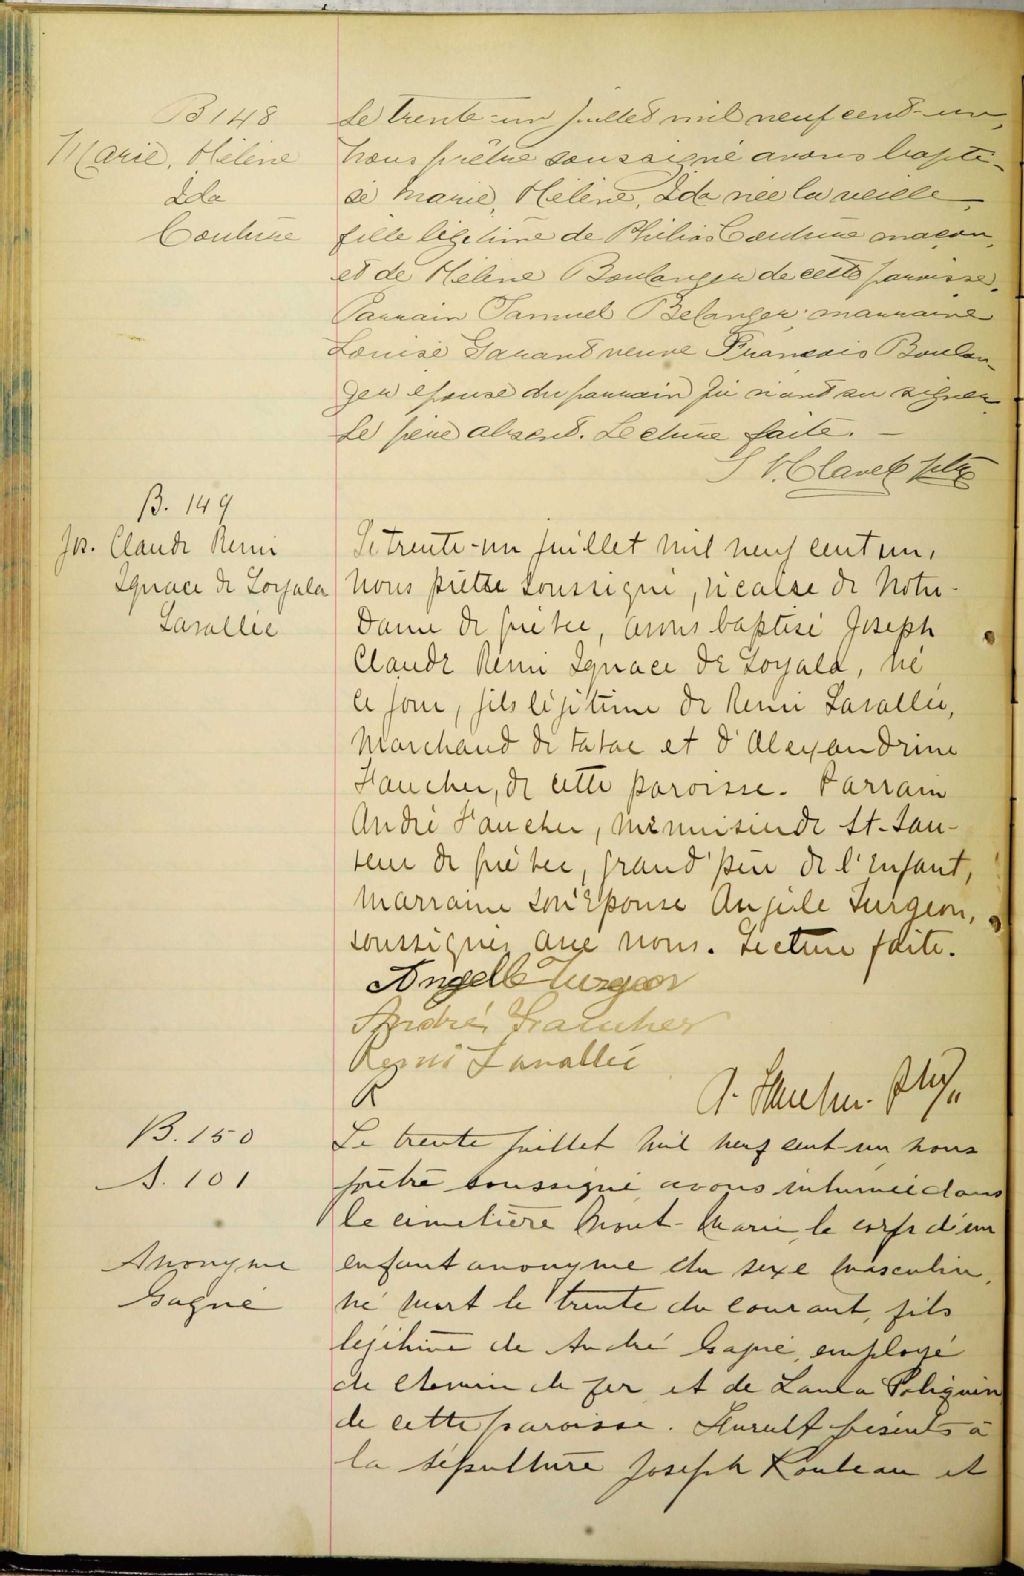 B 148
Marie, Hélène
Ida
Couture
Le trente-un juillet mil neuf cent-un,
nous prêtre soussigné avons bapti-
sé Marie, Hélène, Ida née la veille,
fille légitime de Philias Couture maçon,
et de Hélène Boulanger de cette paroisse.
Parrain Samuel Belanger; marraine
Louise Garant veuve François Boulan-
ger épouse du parrain qui n'ont su signer.
Le père absent. Lecture faite. —
V. Clavet ptre
B. 149
Jos. Claude Remi
Ignace de Loyala
Lavallée
Le trente-un juillet mil neuf cent un,
nous prêtre soussigné, vicaire de Notre-
Dame de Québec, avons baptisé Joseph
Claude Rémi Ignace de Loyala, né
ce jour, fils légitime de Remi Lavallée,
marchand de tabac et d'Alexandrine
Faucher, de cette paroisse. Parrain
André Faucher, menuisier de St-Sau-
veur de Québec, grand'père de l'enfant,
marraine son épouse Angèle Turgeon,
soussignés avec nous. Lecture faite.
Angelle Turgeon
André Faucher
Remi Lavallée
R
A. Faucher. Ptre
B. 150
S. 101
Anonyme
Gagné
Le trente juillet mil neuf cent-un nous
prêtre soussigné avons inhumé dans
le cimetière Mont-Marie, le corps d'un
enfant anonyme du sexe masculin,
né mort le trente du courant, fils
légitime de André Gagné, employé
de chemin de fer et de Laura Poliquin
de cette paroisse. Furent présents à
la sépulture Joseph Rouleau et